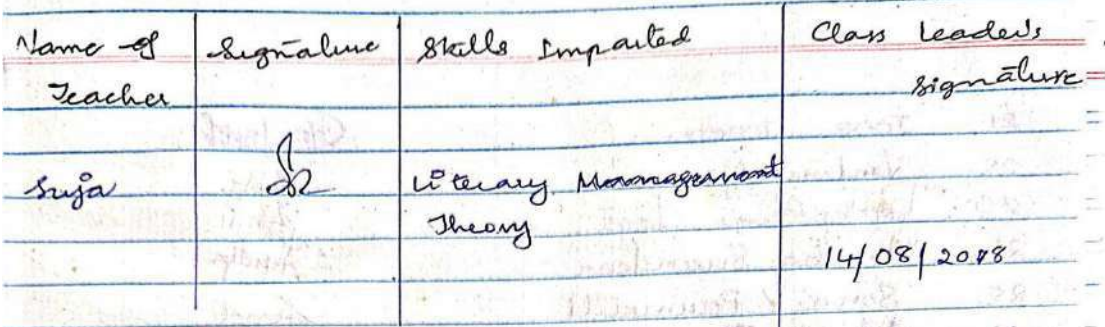 Name of Signature Skills Imparted Class Leader's
Teacher Signature
Suja Literary Management
Theory
14/08/2018